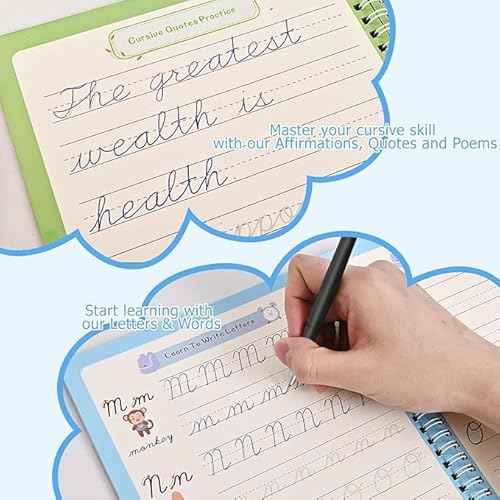 Cursive Quotes Practice
The greatest
wealth is
health.
Master your cursive skill
with our Affirmations, Quotes and Poems
Start learning with
our Letters & Words
Learn To Write Letters
M m M M M M
m m m m
monkey
N n N N N N N N